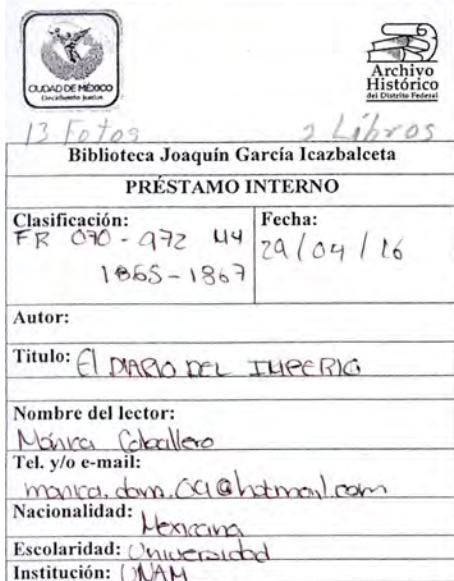 CIUDAD DE MÉXICO
Decidiendo Juntos
Archivo
Histórico
del Distrito Federal
13 Fotos 2 Libros
Biblioteca Joaquín García Icazbalceta
PRÉSTAMO INTERNO
Clasificación: Fecha:
FR 070-972 29/04/16
1865-1867
Autor:
Titulo: El DIARIO DEL IMPERIO
Nombre del lector:
Mónica Caballero
Tel. y/o e-mail:
@hotmail.com
Nacionalidad: Mexicana
Escolaridad: Universidad
Institución: UNAM